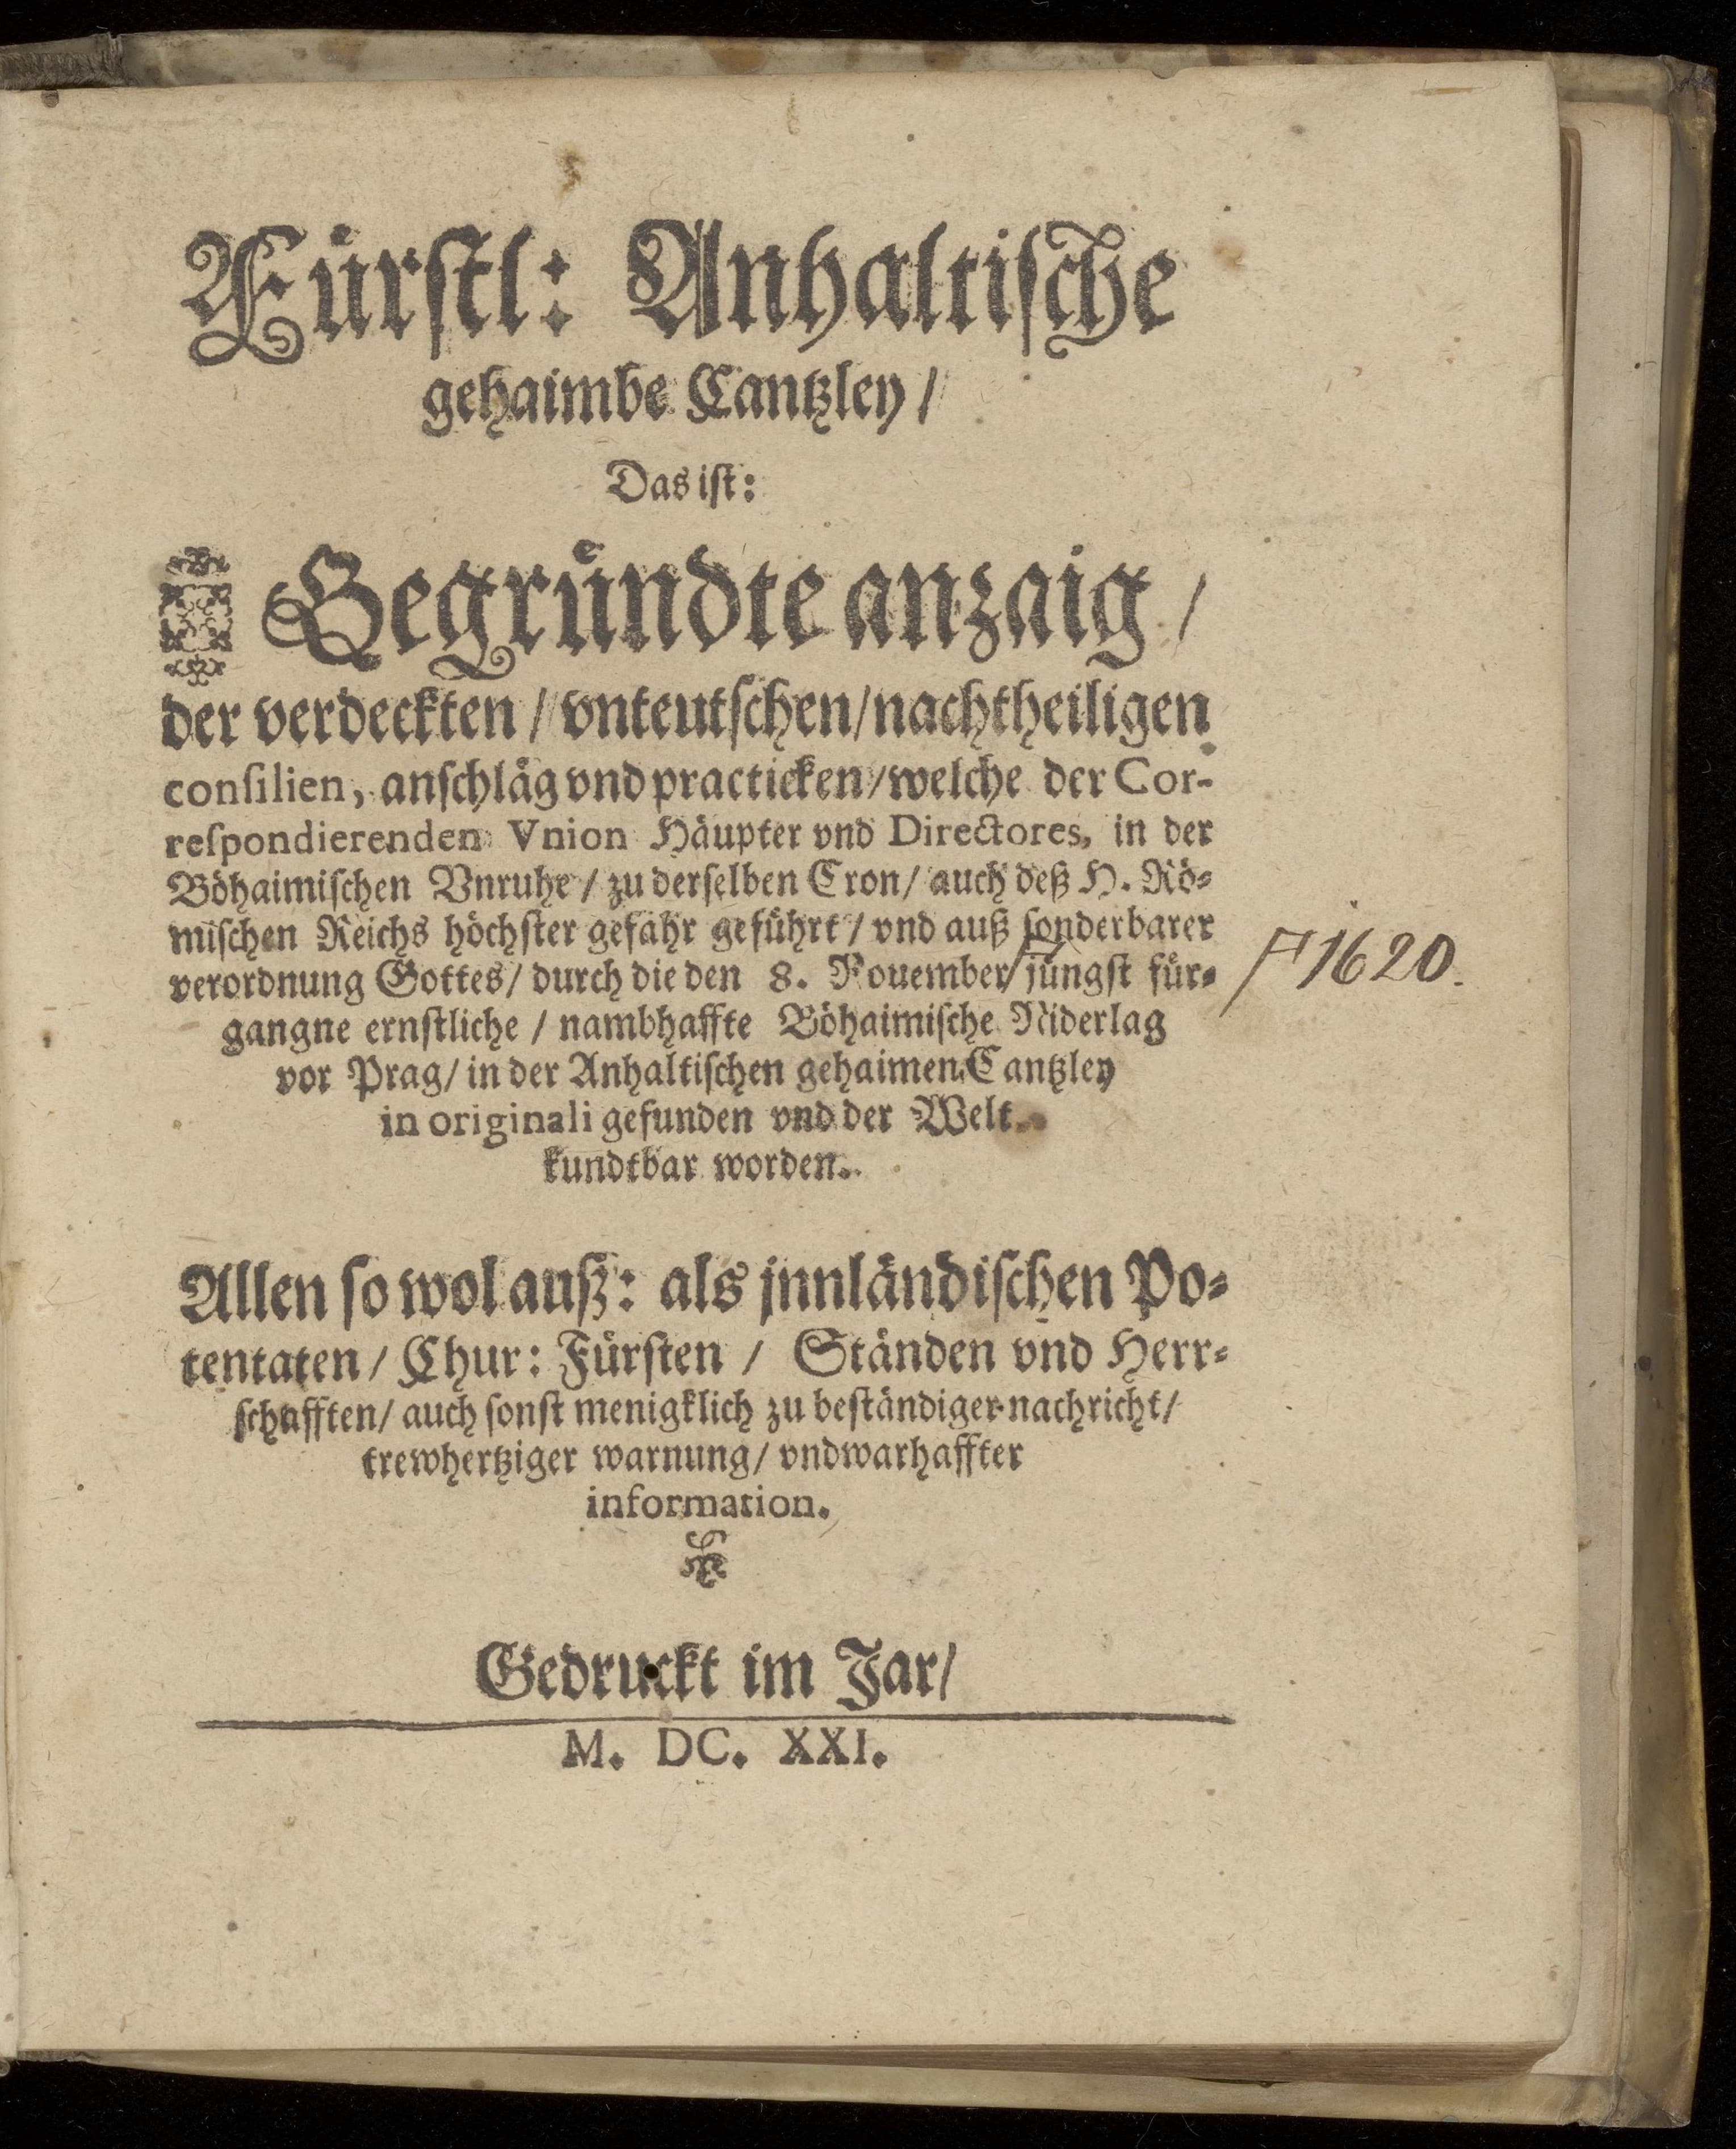 Fürſtl: Anhaltiſche
gehaimbe Cantzley /
Das iſt:
Gegruͤndte anzaig /
der verdeckten / vnteutſchen / nachtheiligen
conſilien, anſchläg vnd practicken / welche der Cor-
reſpondierenden Vnion Häupter vnd Directores, in der
Böhaimiſchen Vnruhe / zu derſelben Cron / auch deß H. Rö-
miſchen Reichs höchſter gefahr geführt / vnd auß ſonderbarer
verordnung Gottes / durch die den 8. Nouember jüngſt für-
1620.
gangne ernſtliche / nambhaffte Böhaimiſche Niderlag
vor Prag / in der Anhaltiſchen gehaimen Cantzley
in originali gefunden vnd der Welt
kundtbar worden.
Allen ſo wol auß: als jnnländiſchen Po-
tentaten / Chur: Fürſten / Ständen vnd Herr-
ſchafften / auch ſonſt menigklich zu beſtändiger nachricht /
trewhertziger warnung / vnd warhaffter
information.
Gedruckt im Jar /
M. DC. XXI.